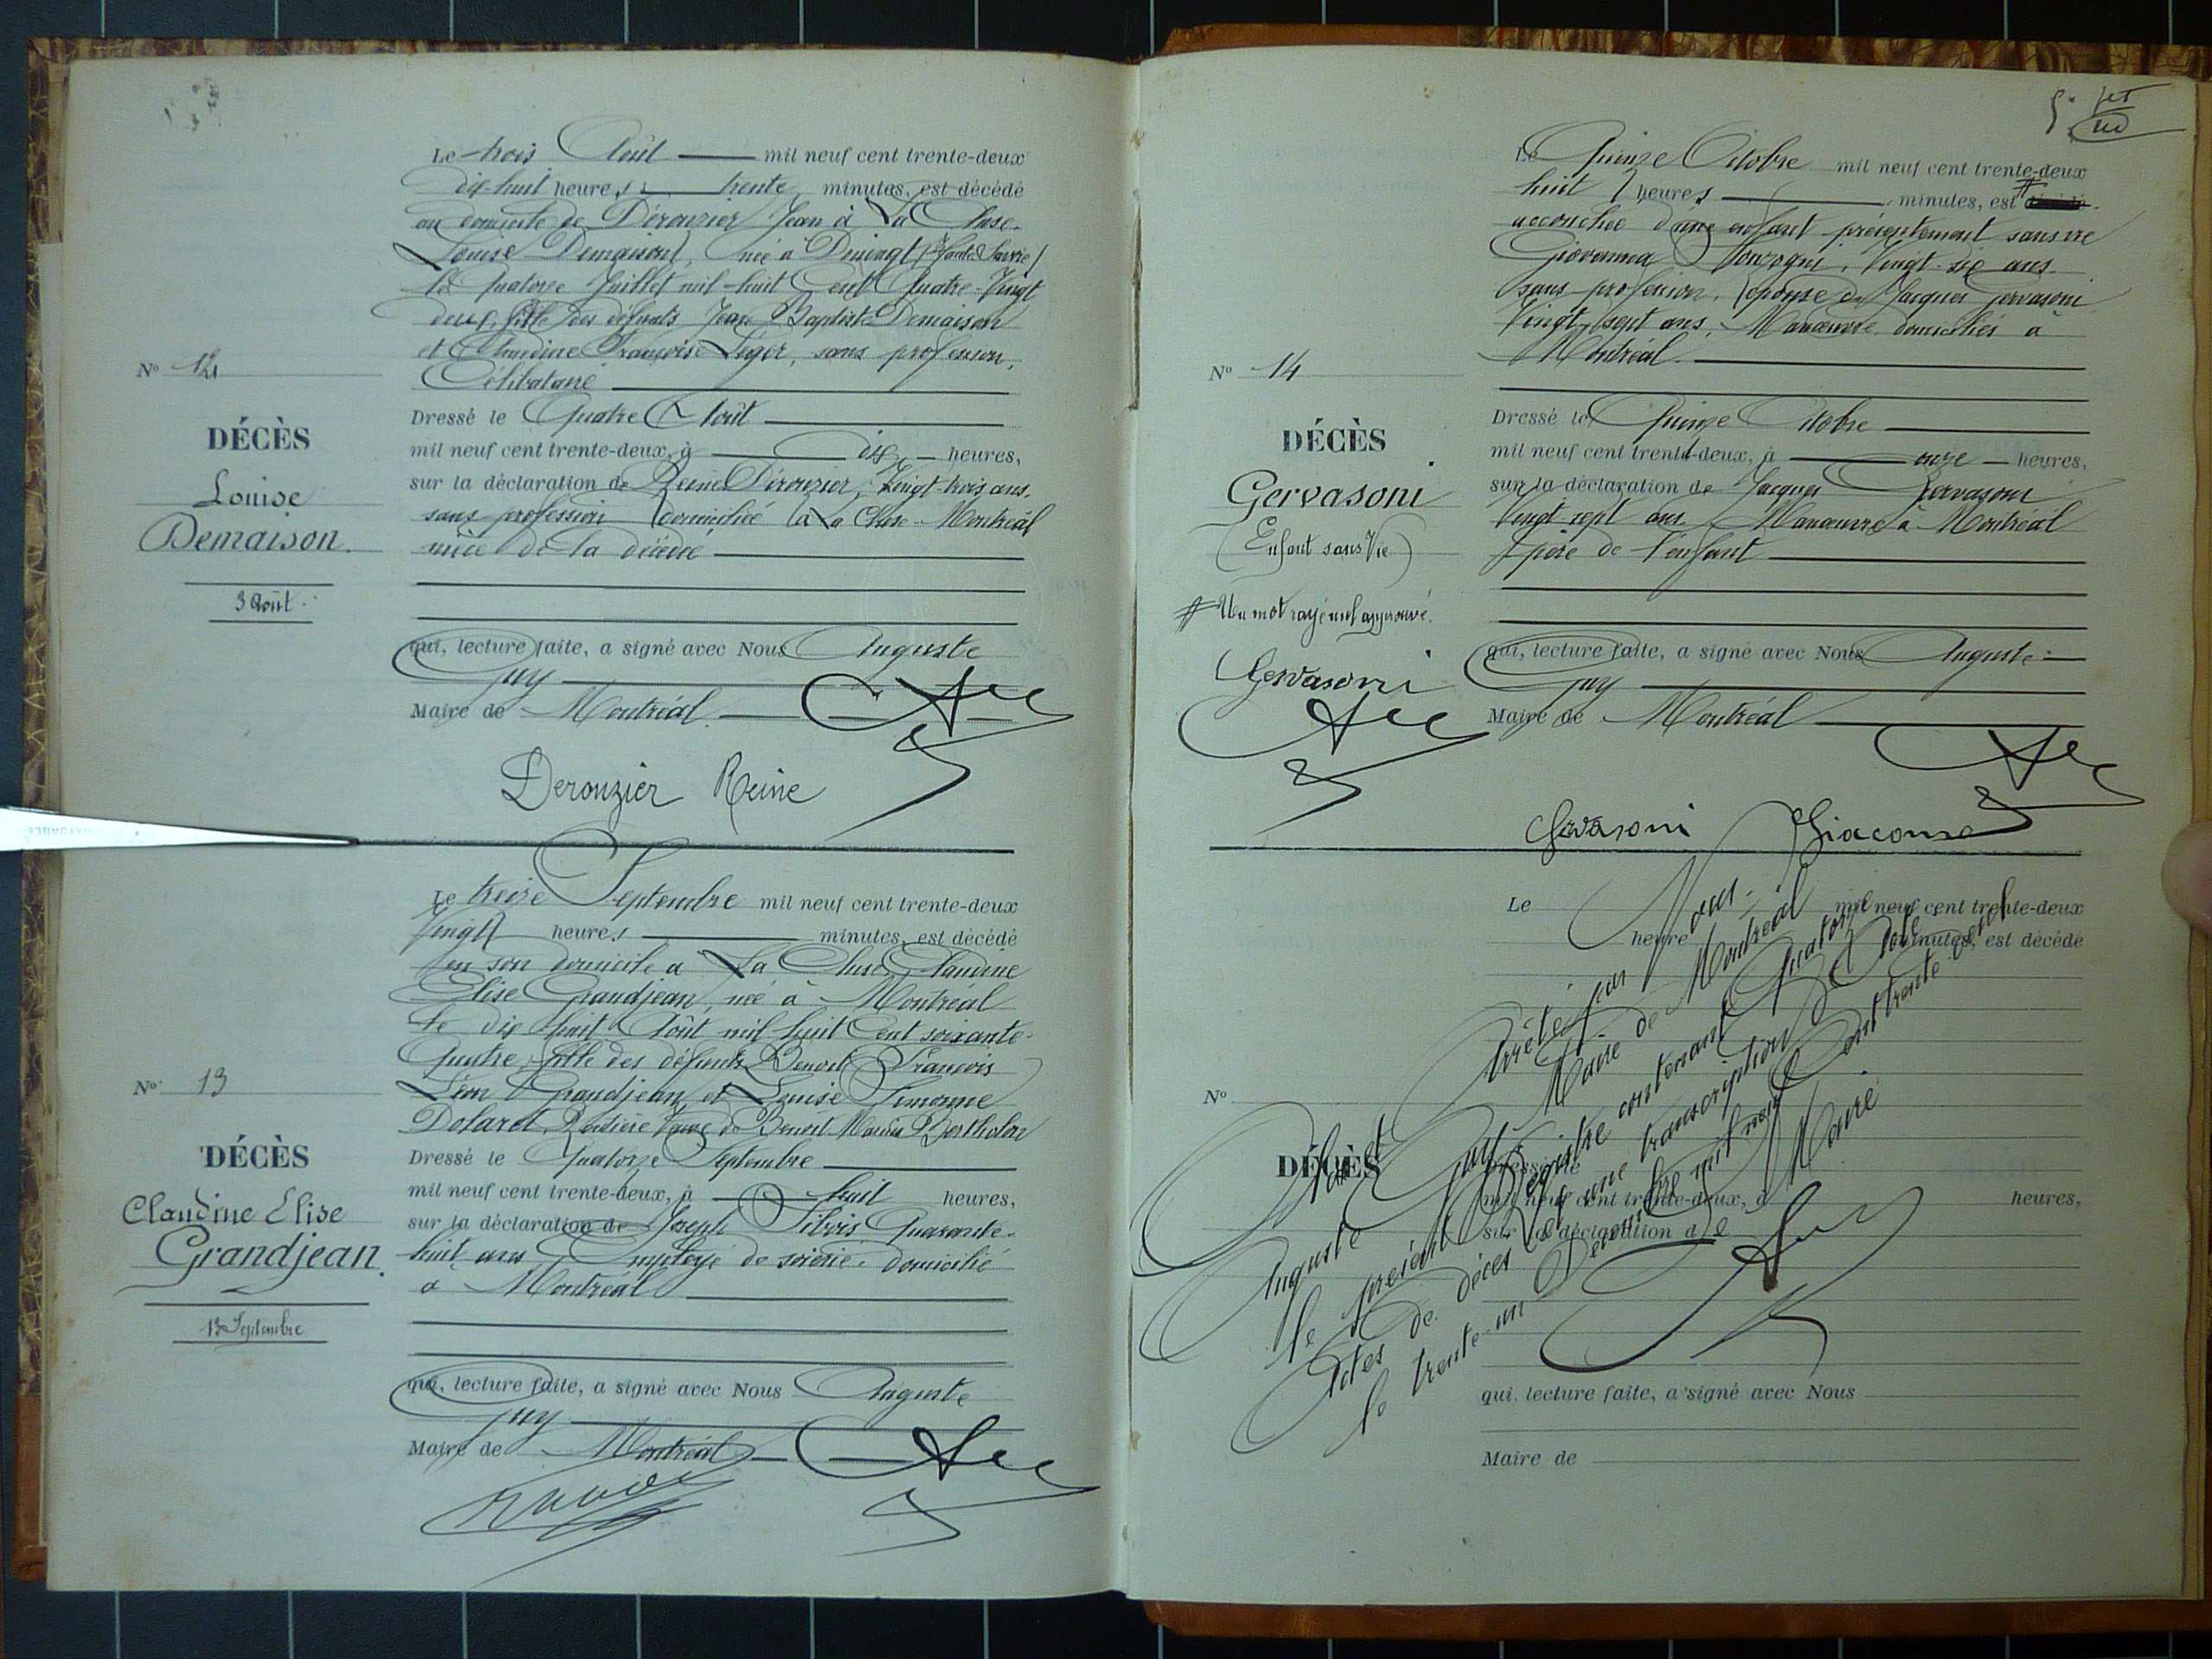 Le trois Août mil neuf cent trente-deux
dix-huit heures trente minutes, est décédé
au domicile de Dérouzier Jean à La Cluse.
Louise Demaison, née à Dningt (Haute Savoie)
le quatorze Juillet mil-huit Cent Quatre-Vingt
deux, fille des défunts Jean Baptiste Demaison
et Claudine Françoise Léger, sans profession,
Célibataire
N° 12
DÉCÈS
Louise
Demaison.
3 Août.
Dressé le Quatre Août
mil neuf cent trente-deux, à dix heures,
sur la déclaration de Reine Dérouzier, Vingt-trois ans,
sans profession domiciliée à La Cluse-Montréal
nièce de la décédée
qui, lecture faite, a signé avec Nous Auguste
Guy
Maire de Montréal.
Derouzier Reine
Le treize Septembre mil neuf cent trente-deux
Vingt heures minutes, est décédé
en son domicile à La Cluse, Claudine
Elise Grandjean, née à Montréal
le dix huit Août mil huit Cent soixante-
quatre, fille des défunts Benoit François
Léon Grandjean et Louise Simonne
Dolaret, Rentière Veuve de Benoit Bertholon
N° 13
DÉCÈS
Claudine Elise
Grandjean.
13 Septembre
Dressé le Quatorze Septembre
mil neuf cent trente-deux, à huit heures,
sur la déclaration de Joseph Quarante-
huit ans, Employé de soierie, domicilié
à Montréal
qui, lecture faite, a signé avec Nous Auguste
Guy
Maire de Montréal
Le Quinze Octobre mil neuf cent trente-deux
huit heures minutes, est
accouchée d'une enfant présentement sans vie
Giovanna Monzogni, Vingt-six ans
sans profession, épouse de Jacques Gervasoni
Vingt-sept ans, Manœuvre domiciliés à
Montréal.
N° 14
DÉCÈS
Gervasoni
(Enfant sans Vie)
# Un mot rayé nul approuvé.
Gervasoni
Dressé le Quinze Octobre
mil neuf cent trente-deux, à onze heures,
sur la déclaration de Jacques Gervasoni
Vingt-sept ans, Manœuvre à Montréal
père de l'enfant
qui, lecture faite, a signé avec Nous Auguste
Guy
Maire de Montréal
Gervasoni Giacomo
Le mil neuf cent trente-deux
heure minutes, est décédé
N°
DÉCÈS
Dressé le
mil neuf cent trente-deux, à heures,
sur la déclaration de
qui, lecture faite, a signé avec Nous
Maire de
Clos et Arrêté par Nous
Auguste Guy Maire de Montréal
le présent Registre contenant Quatorze
Actes de décès et une transcription
le trente-un Décembre mil neuf Cent trente-deux
Maire